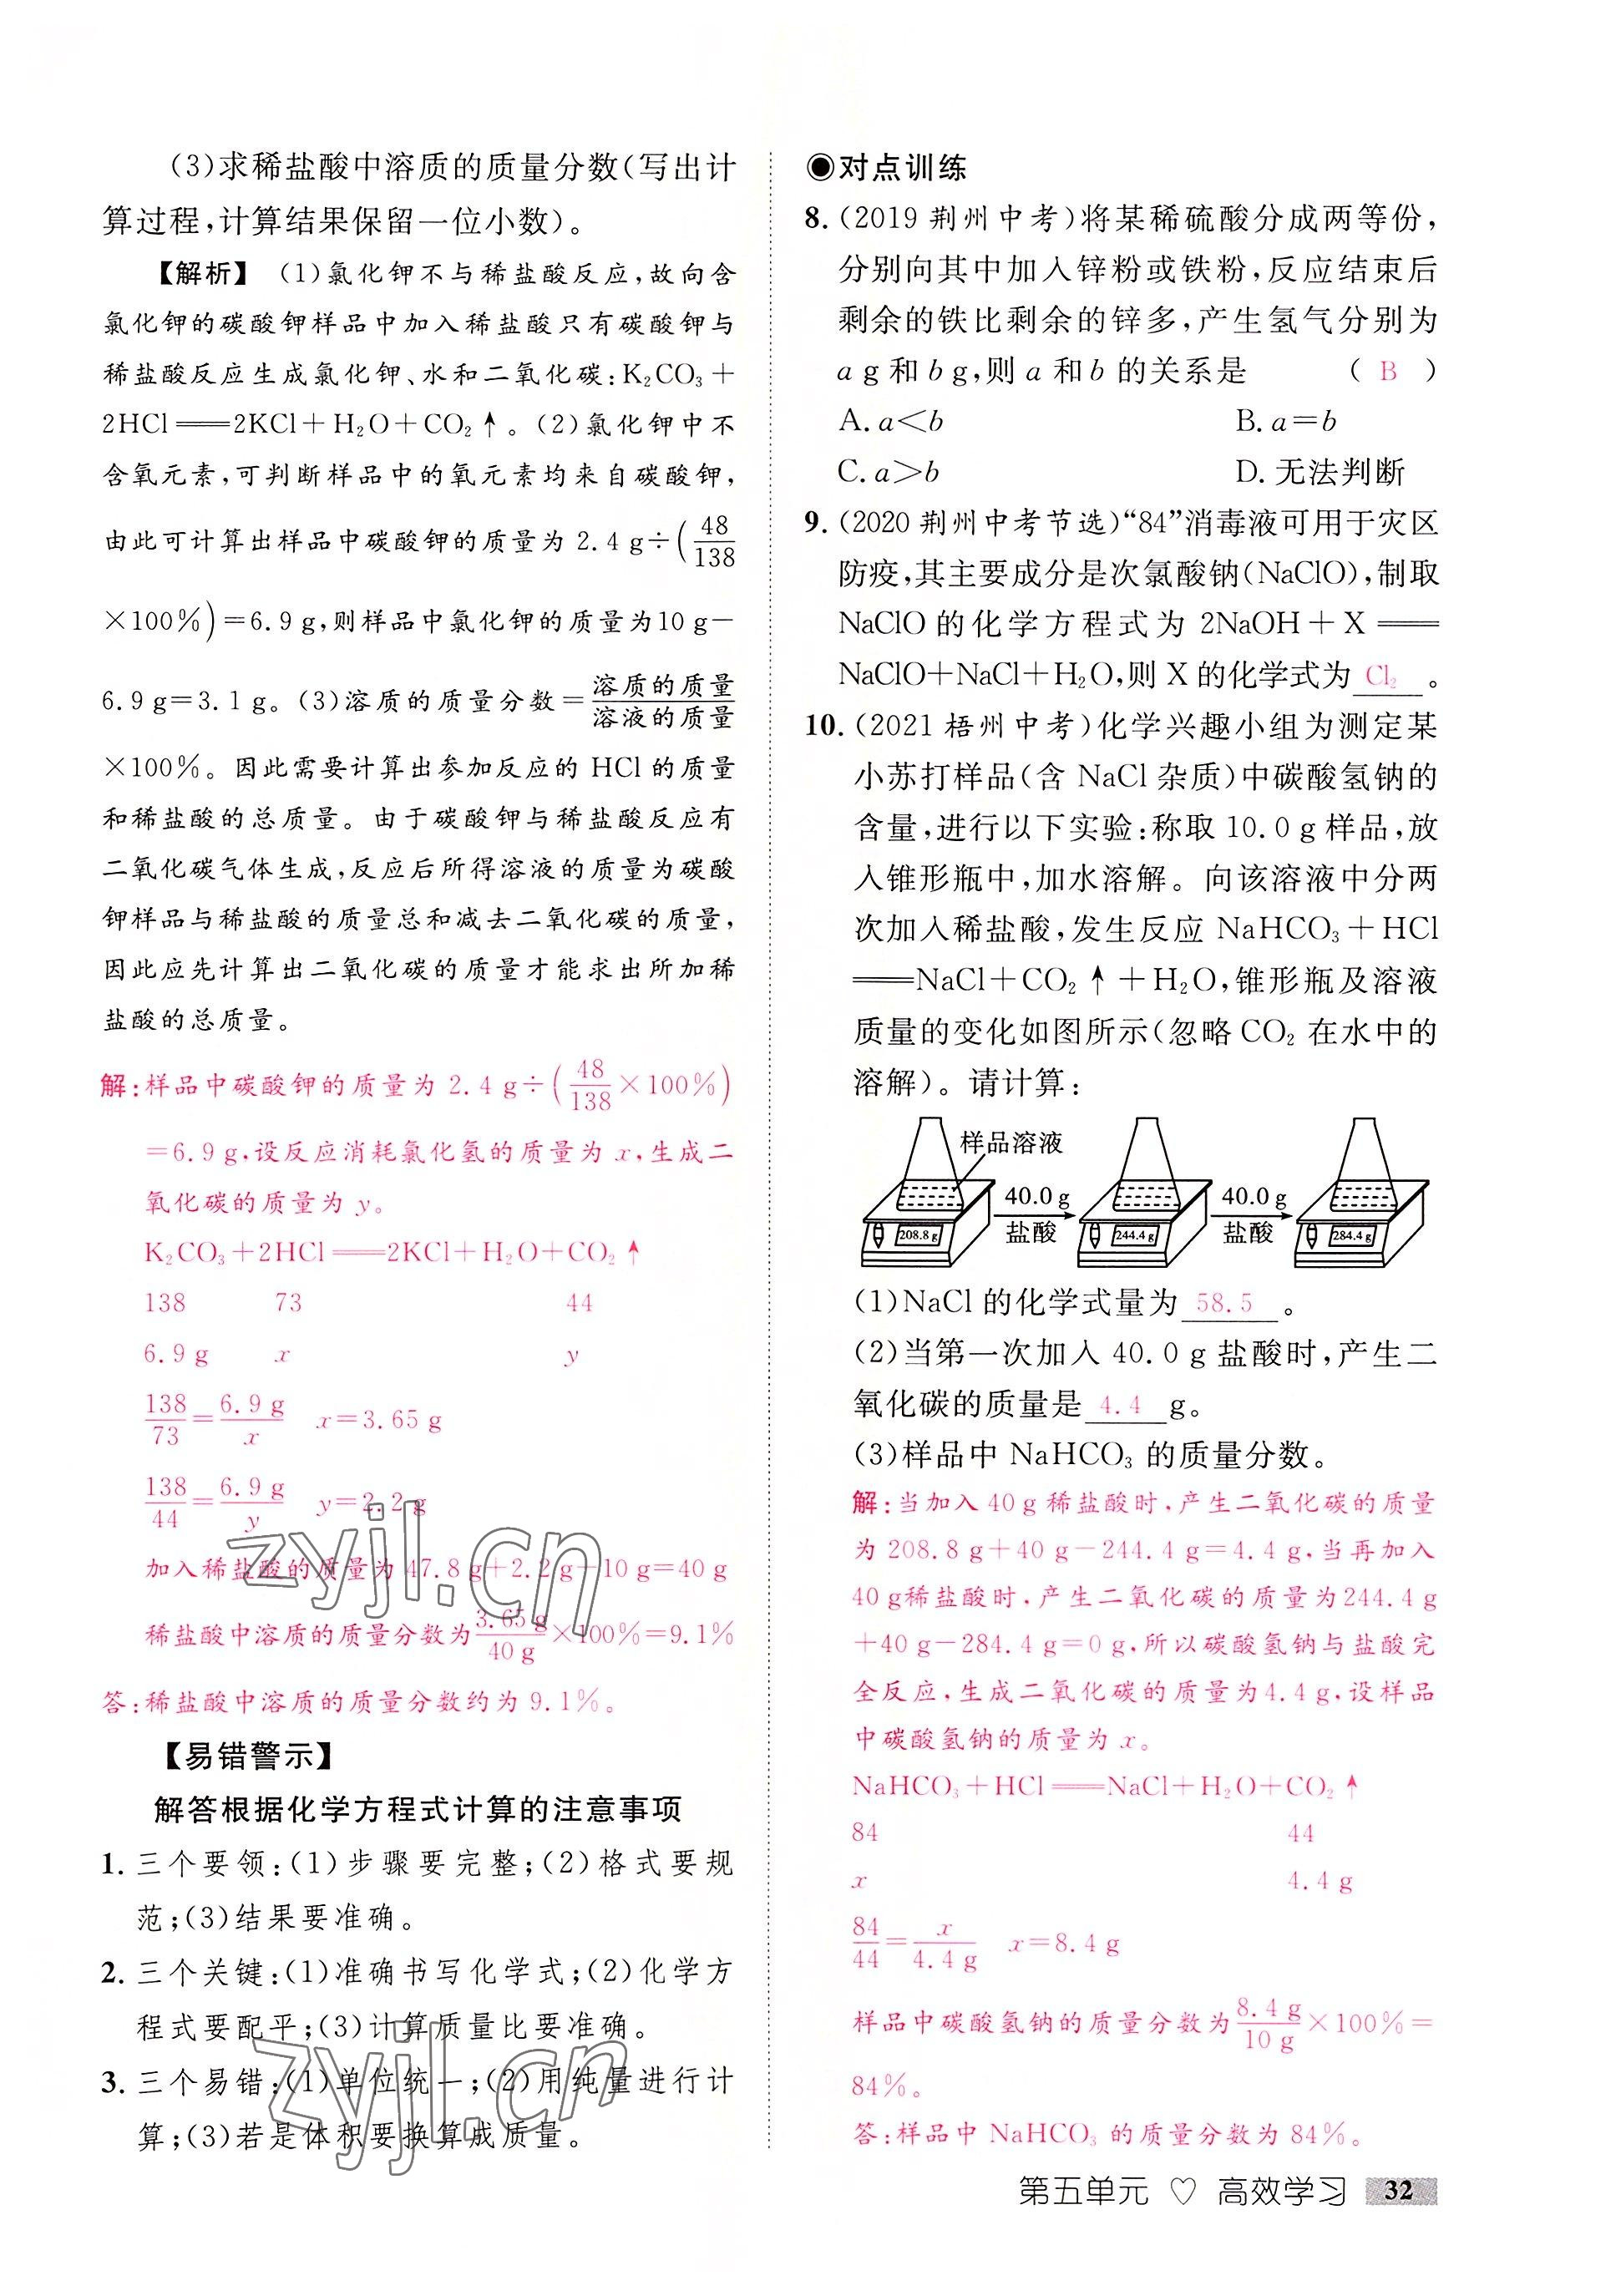 (3)求稀盐酸中溶质的质量分数(写出计
算过程,计算结果保留一位小数)。
【解析】 (1)氯化钾不与稀盐酸反应,故向含
氯化钾的碳酸钾样品中加入稀盐酸只有碳酸钾与
稀盐酸反应生成氯化钾、水和二氧化碳:K₂CO₃+
2HCl══2KCl+H₂O+CO₂↑。(2)氯化钾中不
含氧元素,可判断样品中的氧元素均来自碳酸钾,
由此可计算出样品中碳酸钾的质量为 2.4 g÷(48/138
×100%)=6.9 g,则样品中氯化钾的质量为10 g-
6.9 g=3.1 g。(3)溶质的质量分数=溶质的质量/溶液的质量
×100%。因此需要计算出参加反应的 HCl 的质量
和稀盐酸的总质量。由于碳酸钾与稀盐酸反应有
二氧化碳气体生成,反应后所得溶液的质量为碳酸
钾样品与稀盐酸的质量总和减去二氧化碳的质量,
因此应先计算出二氧化碳的质量才能求出所加稀
盐酸的总质量。
解:样品中碳酸钾的质量为 2.4 g÷(48/138×100%)
=6.9 g,设反应消耗氯化氢的质量为 x,生成二
氧化碳的质量为 y。
K₂CO₃+2HCl══2KCl+H₂O+CO₂↑
138 73 44
6.9 g x y
138/73=6.9 g/x x=3.65 g
138/44=6.9 g/y y=2.2 g
加入稀盐酸的质量为 47.8 g+2.2 g-10 g=40 g
稀盐酸中溶质的质量分数为3.65 g/40 g×100%=9.1%
答:稀盐酸中溶质的质量分数约为 9.1%。
【易错警示】
解答根据化学方程式计算的注意事项
1. 三个要领:(1)步骤要完整;(2)格式要规
范;(3)结果要准确。
2. 三个关键:(1)准确书写化学式;(2)化学方
程式要配平;(3)计算质量比要准确。
3. 三个易错:(1)单位统一;(2)用纯量进行计
算;(3)若是体积要换算成质量。
zyjl.cn
zyjl.cn
◉对点训练
8. (2019 荆州中考)将某稀硫酸分成两等份,
分别向其中加入锌粉或铁粉,反应结束后
剩余的铁比剩余的锌多,产生氢气分别为
a g 和 b g,则 a 和 b 的关系是 ( B )
A. a<b B. a=b
C. a>b D. 无法判断
9. (2020 荆州中考节选)“84”消毒液可用于灾区
防疫,其主要成分是次氯酸钠(NaClO),制取
NaClO 的化学方程式为 2NaOH+X══
NaClO+NaCl+H₂O,则 X 的化学式为 Cl₂ 。
10. (2021 梧州中考)化学兴趣小组为测定某
小苏打样品(含 NaCl 杂质)中碳酸氢钠的
含量,进行以下实验:称取 10.0 g 样品,放
入锥形瓶中,加水溶解。向该溶液中分两
次加入稀盐酸,发生反应 NaHCO₃+HCl
══NaCl+CO₂↑+H₂O,锥形瓶及溶液
质量的变化如图所示(忽略 CO₂ 在水中的
溶解)。请计算:
样品溶液
40.0 g 盐酸
40.0 g 盐酸
208.8 g 244.4 g 284.4 g
(1)NaCl 的化学式量为 58.5 。
(2)当第一次加入 40.0 g 盐酸时,产生二
氧化碳的质量是 4.4 g。
(3)样品中 NaHCO₃ 的质量分数。
解:当加入 40 g 稀盐酸时,产生二氧化碳的质量
为 208.8 g+40 g-244.4 g=4.4 g,当再加入
40 g稀盐酸时,产生二氧化碳的质量为244.4 g
+40 g-284.4 g=0 g,所以碳酸氢钠与盐酸完
全反应,生成二氧化碳的质量为4.4 g,设样品
中碳酸氢钠的质量为 x。
NaHCO₃+HCl══NaCl+H₂O+CO₂↑
84 44
x 4.4 g
84/44=x/4.4 g x=8.4 g
样品中碳酸氢钠的质量分数为8.4 g/10 g×100%=
84%。
答:样品中 NaHCO₃ 的质量分数为 84%。
第五单元 ♡ 高效学习 32